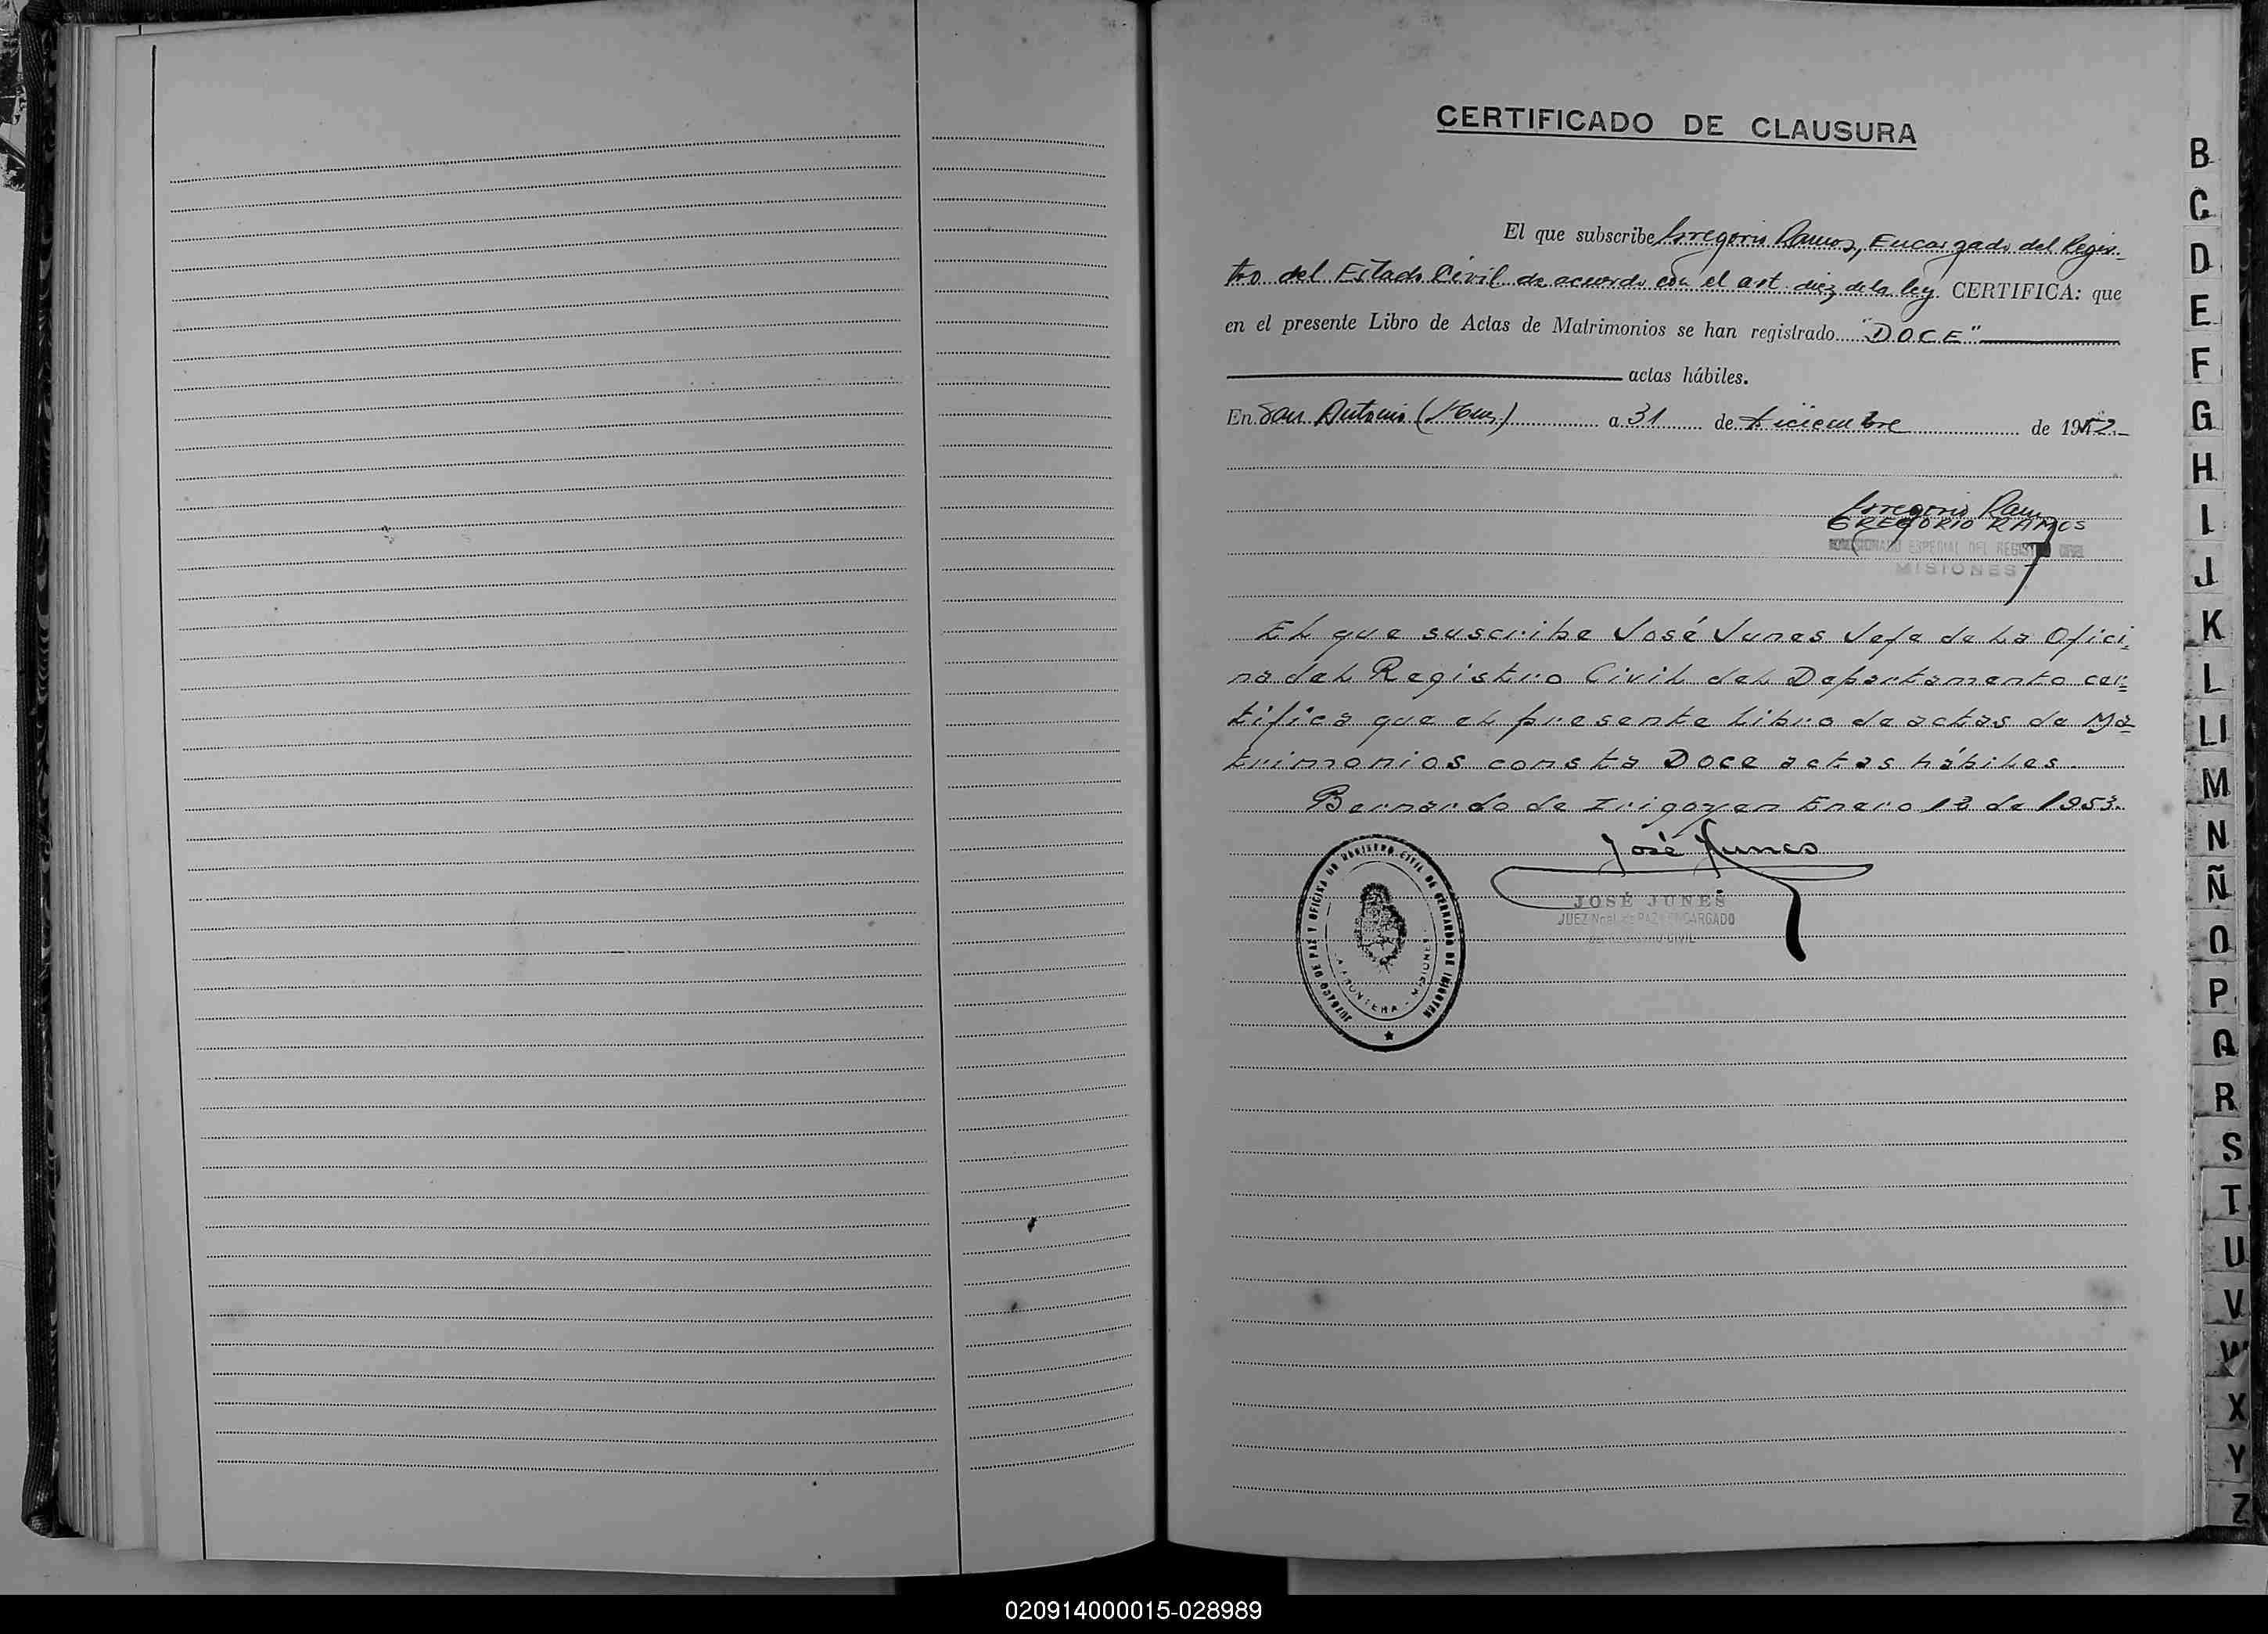 CERTIFICADO DE CLAUSURA
El que subscribe Gregorio Ramos, Encargado del Regis-
tro del Estado Civil de acuerdo con el art. diez de la ley CERTIFICA: que
en el presente Libro de Actas de Matrimonios se han registrado "DOCE"
actas hábiles.
En San Antonio (Mnes.) a 31 de diciembre de 1952.-
Gregorio Ramos
GREGORIO RAMOS
COMISIONADO ESPECIAL DEL REGISTRO CIVIL
MISIONES
El que suscribe José Junes Jefe de la Ofici-
na del Registro Civil del Departamento cer=
tifica que el presente Libro de actas de Ma=
trimonios consta Doce actas hábiles.
Bernardo de Irigoyen Enero 13 de 1953.
José Junes
JOSÉ JUNES
JUEZ Ncnl. de PAZ y ENCARGADO
del REGISTRO CIVIL
JUZGADO DE PAZ Y OFICINA DE REGISTRO CIVIL DE BERNARDO DE IRIGOYEN
LA FRONTERA - MISIONES
B
C
D
E
F
G
H
I
J
K
L
Ll
M
N
Ñ
O
P
Q
R
S
T
U
V
W
X
Y
Z
020914000015-028989